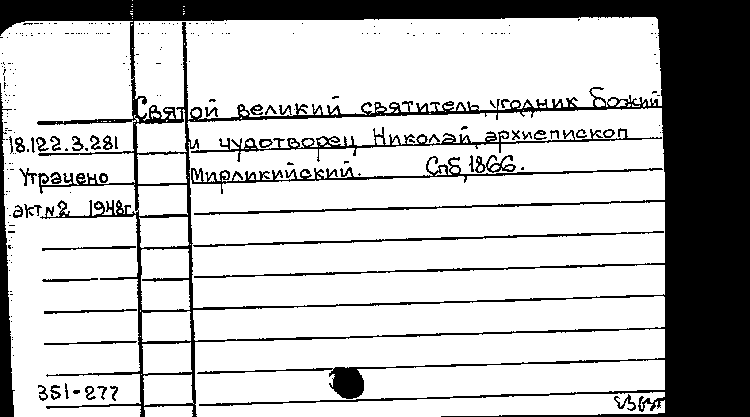 Святой великий святитель, угодник Божий
18.122.3.281 и чудотворец Николай, архиепископ
Утрачено Мирликийский. Спб, 1866.
акт №2 1948г.
351-277